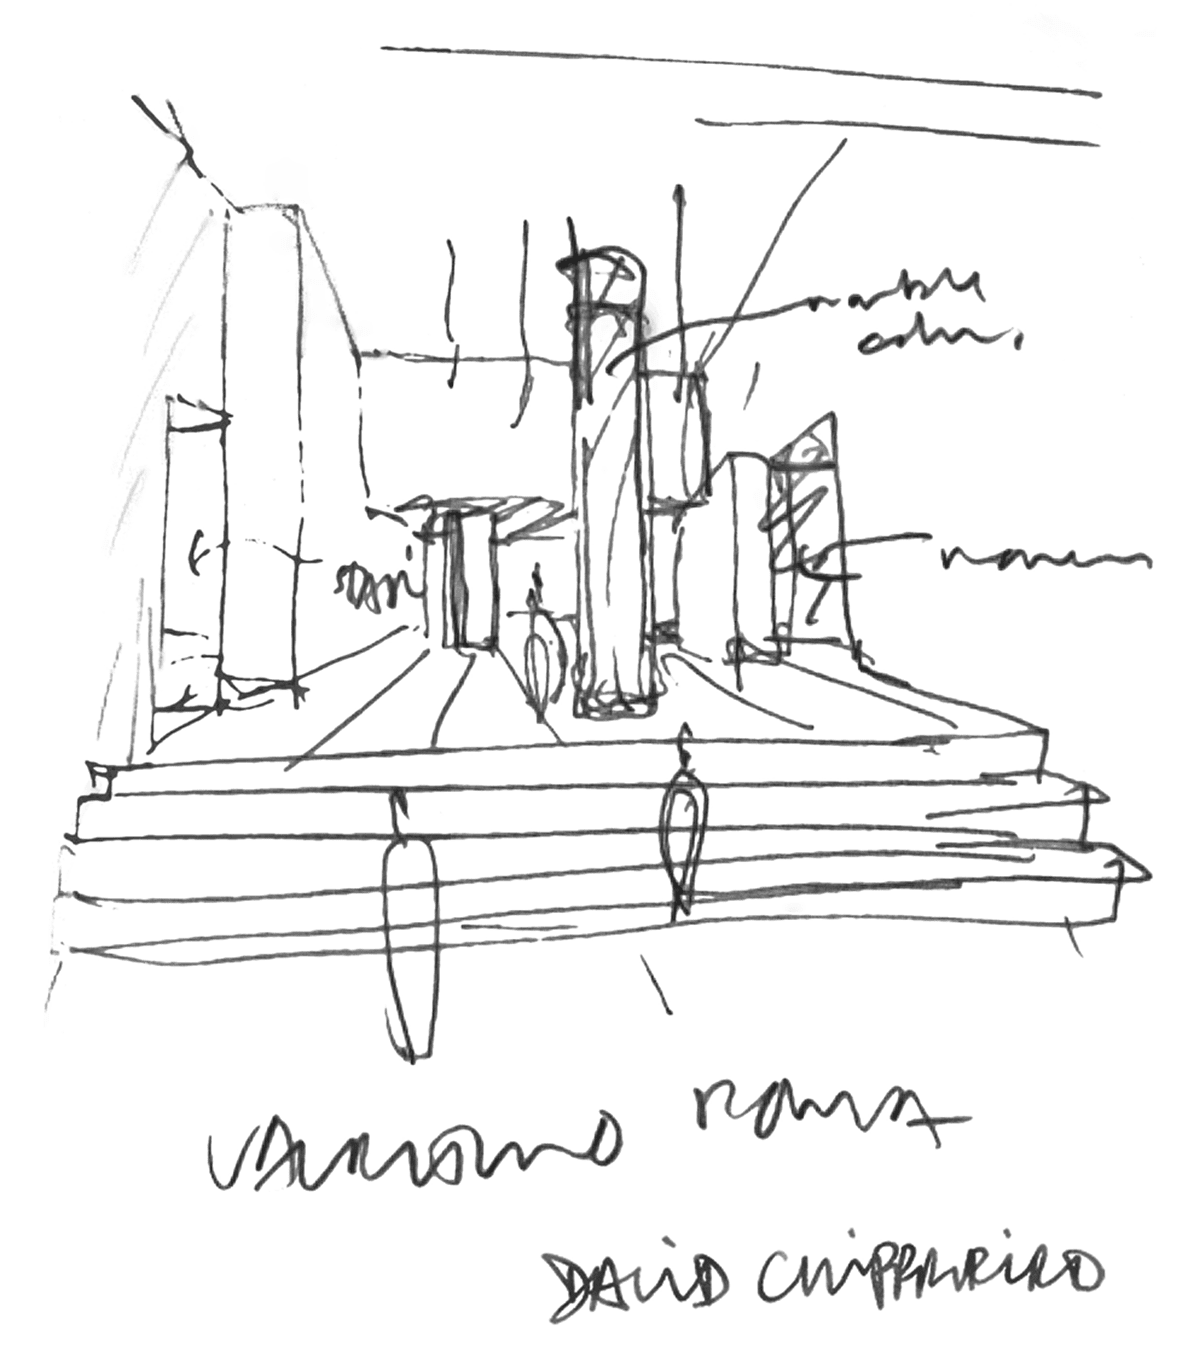 marble
colum.
STAIR
VALENTINO ROMA
DAVID CHIPPERFIELD